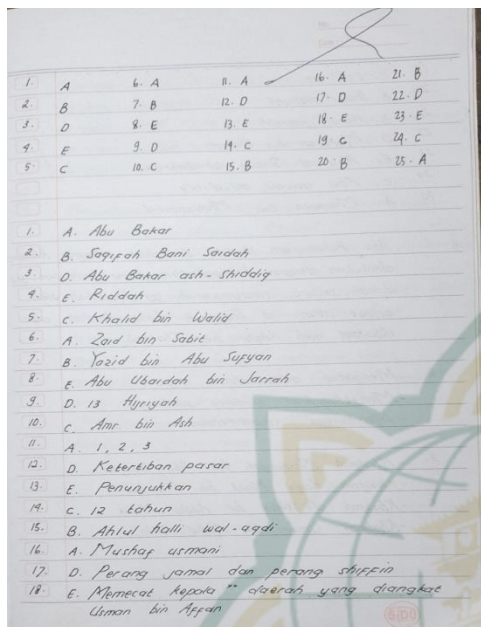 1. A 6. A 11. A 16. A 21. B
2. B 7. B 12. D 17. D 22. D
3. D 8. E 13. E 18. E 23. E
4. E 9. D 14. C 19 C 24. C
5. C 10. C 15. B 20. B 25. A
1. A. Abu Bakar
2. B. Saqifah Bani Saidah
3. D. Abu Bakar ash-shiddiq
4. E. Riddah
5. C. Khalid bin Walid
6. A. Zaid bin Sabit
7. B. Yazid bin Abu Sufyan
8. E. Abu Ubaidah bin Jarrah
9. D. 13 Hijriyah
10. C. Amr bin Ash
11. A. 1, 2, 3
12. D. Ketertiban pasar
13. E. Penunjukkan
14. C. 12 tahun
15. B. Ahlul halli wal-aqdi
16. A. Mushaf usmani
17. D. Perang jamal dan perang shiffin
18. E. Memecat kepala" daerah yang diangkat
Usman bin Affan